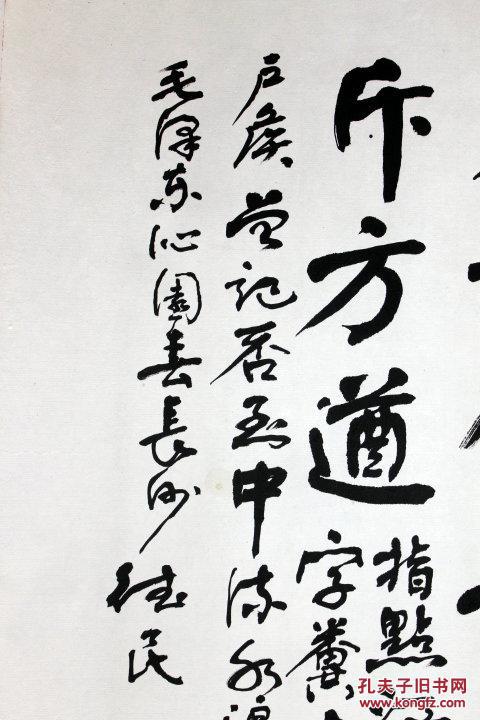 斥方遒
指點
字糞
户侯曾記否到中流水
毛泽东沁園春長沙
民
孔夫子旧书网
www.kongfz.com